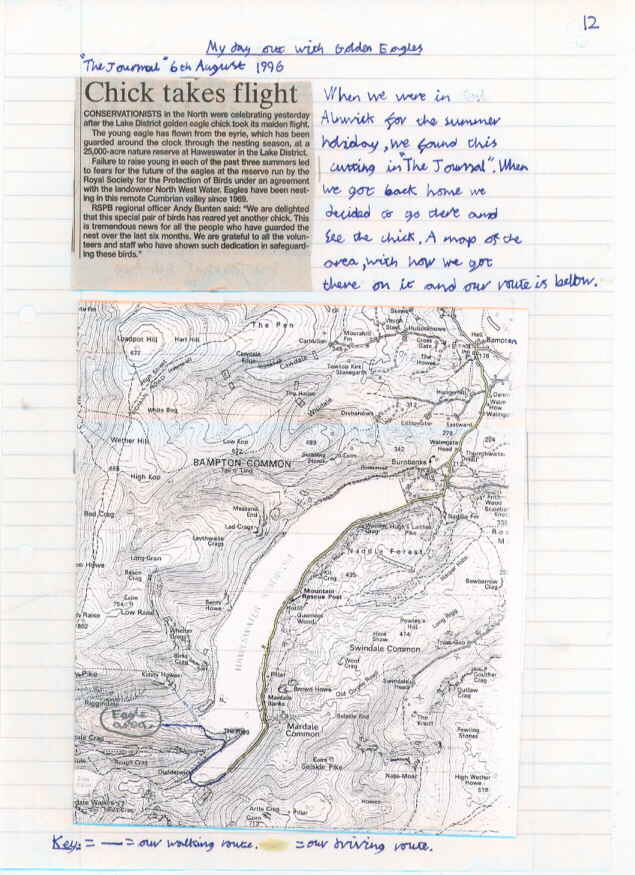 12
My day out with Golden Eagles
"The Journal" 6th August 1996
Chick takes flight
CONSERVATIONISTS in the North were celebrating yesterday
after the Lake District golden eagle chick took its maiden flight.
The young eagle has flown from the eyrie, which has been
guarded around the clock through the nesting season, at a
25,000-acre nature reserve at Haweswater in the Lake District.
Failure to raise young in each of the past three summers led
to fears for the future of the eagles at the reserve run by the
Royal Society for the Protection of Birds under an agreement
with the landowner North West Water. Eagles have been nest-
ing in this remote Cumbrian valley since 1969.
RSPB regional officer Andy Bunten said: "We are delighted
that this special pair of birds has reared yet another chick. This
is tremendous news for all the people who have guarded the
nest over the last six months. We are grateful to all the volun-
teers and staff who have shown such dedication in safeguard-
ing these birds."
When we were in
Alnwick for the summer
holiday, we found this
cutting in "The Journal". When
we got back home we
decided to go there and
see the chick. A map of the
area, with how we got
there on it and our route is below.
The Pen
Loadpot Hill
Hart Hill
672
Cawdale
Edge
Cawdale
High Street
Carhullan
Moorahill
Fm
Hullockhowe
Cross
Gate
The
Howes
Bampton
Towtop Kirk
Stanegarth
The Haws
White Bog
Hungerhill
312
Littlewater
Eastward
279
Walmgate
Head
204
Wether Hill
Low Kop
572
489
342
BAMPTON COMMON
Burnbanks
High Kop
Measand
End
Lad Crags
Laythwaite
Crags
Long Grain
Bason
Crag
Low Raise
Naddle Forest
435
Mountain
Rescue Post
Hotel
Guerness
Wood
HAWESWATER
Swindale Common
Hare
Shaw
Powley's
Hill
414
Whelter
Crags
Birks
Crag
Kidsty Howes
Pillar
Mardale
Banks
Mardale
Common
Selside End
Selside Pike
The
Knott
Outlaw
Crag
Gouther
Crag
Fewling
Stones
High Wether
Howe
Nabs Moor
Riggindale
Eagle
area
The Rigg
Rough Crag
Artle Crag
Pillar
713
Key: = — = our walking route. = our driving route.